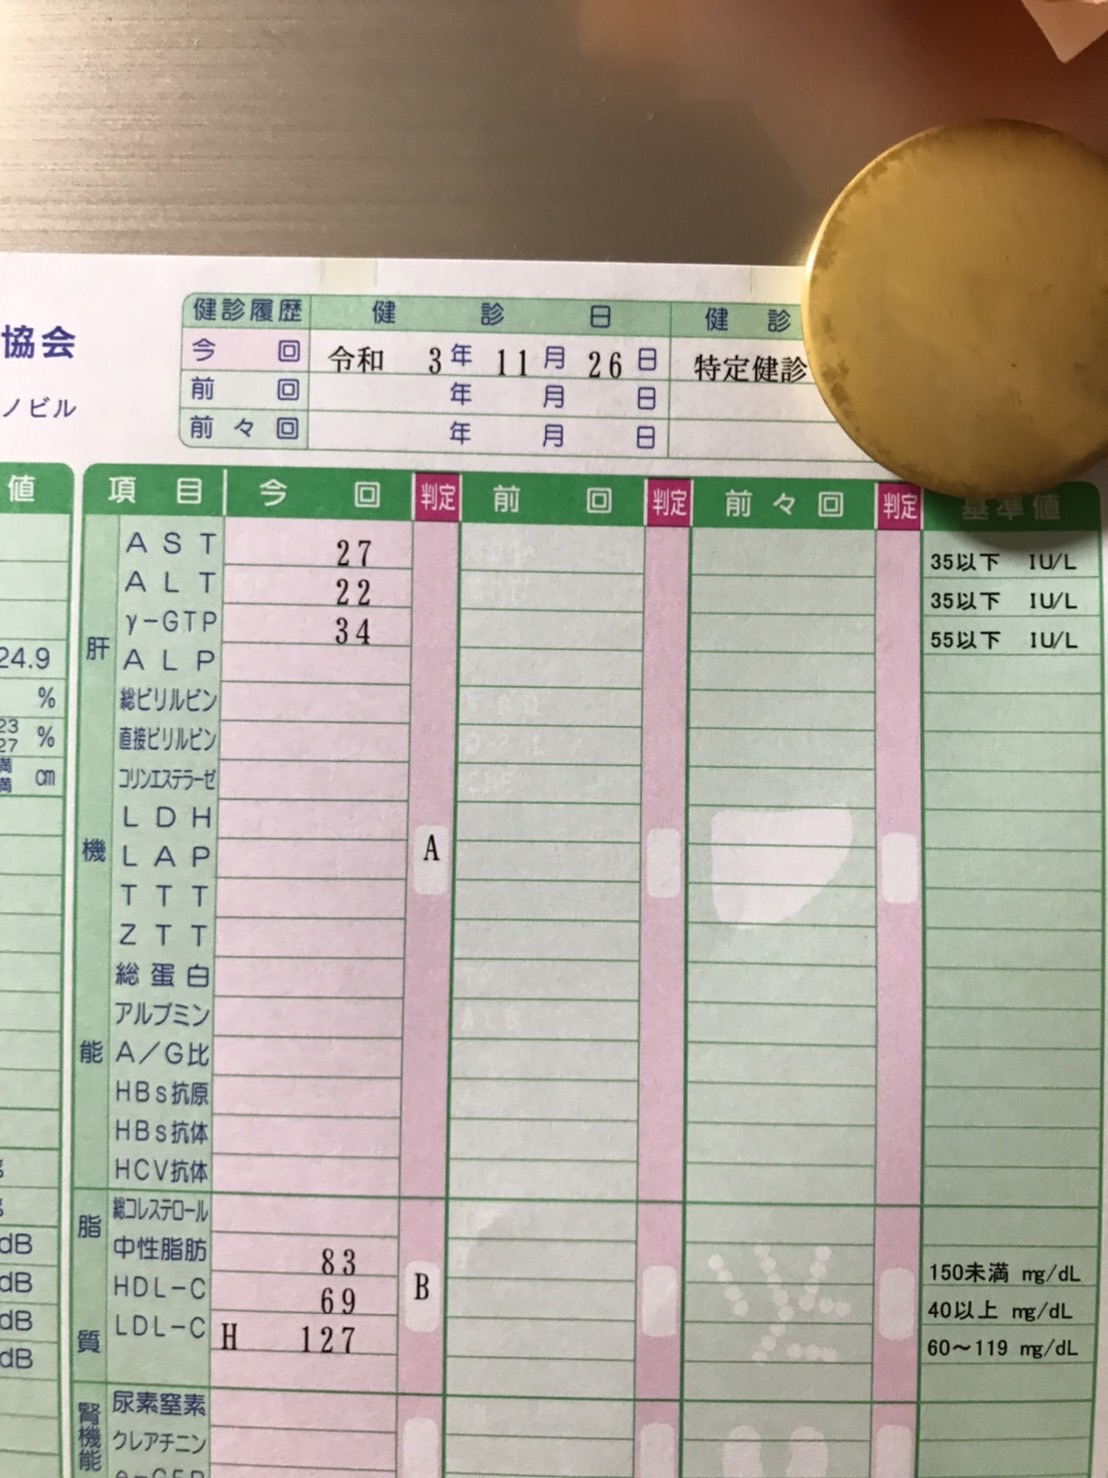 協会
ノビル
健診履歴 健診日 健診
今回 令和 3年 11月 26日 特定健診
前回 年 月 日
前々回 年 月 日
値
24.9
%
23
27 %
満
満 cm
dB
dB
dB
dB
項目 今回 判定 前回 判定 前々回 判定 基準値
肝機能
AST 27 35以下 IU/L
ALT 22 35以下 IU/L
γ-GTP 34 55以下 IU/L
ALP
総ビリルビン
直接ビリルビン
コリンエステラーゼ
LDH
LAP A
TTT
ZTT
総蛋白
アルブミン
A/G比
HBs抗原
HBs抗体
HCV抗体
脂質
総コレステロール
中性脂肪 83 150未満 mg/dL
HDL-C 69 B 40以上 mg/dL
LDL-C H 127 60~119 mg/dL
腎機能
尿素窒素
クレアチニン